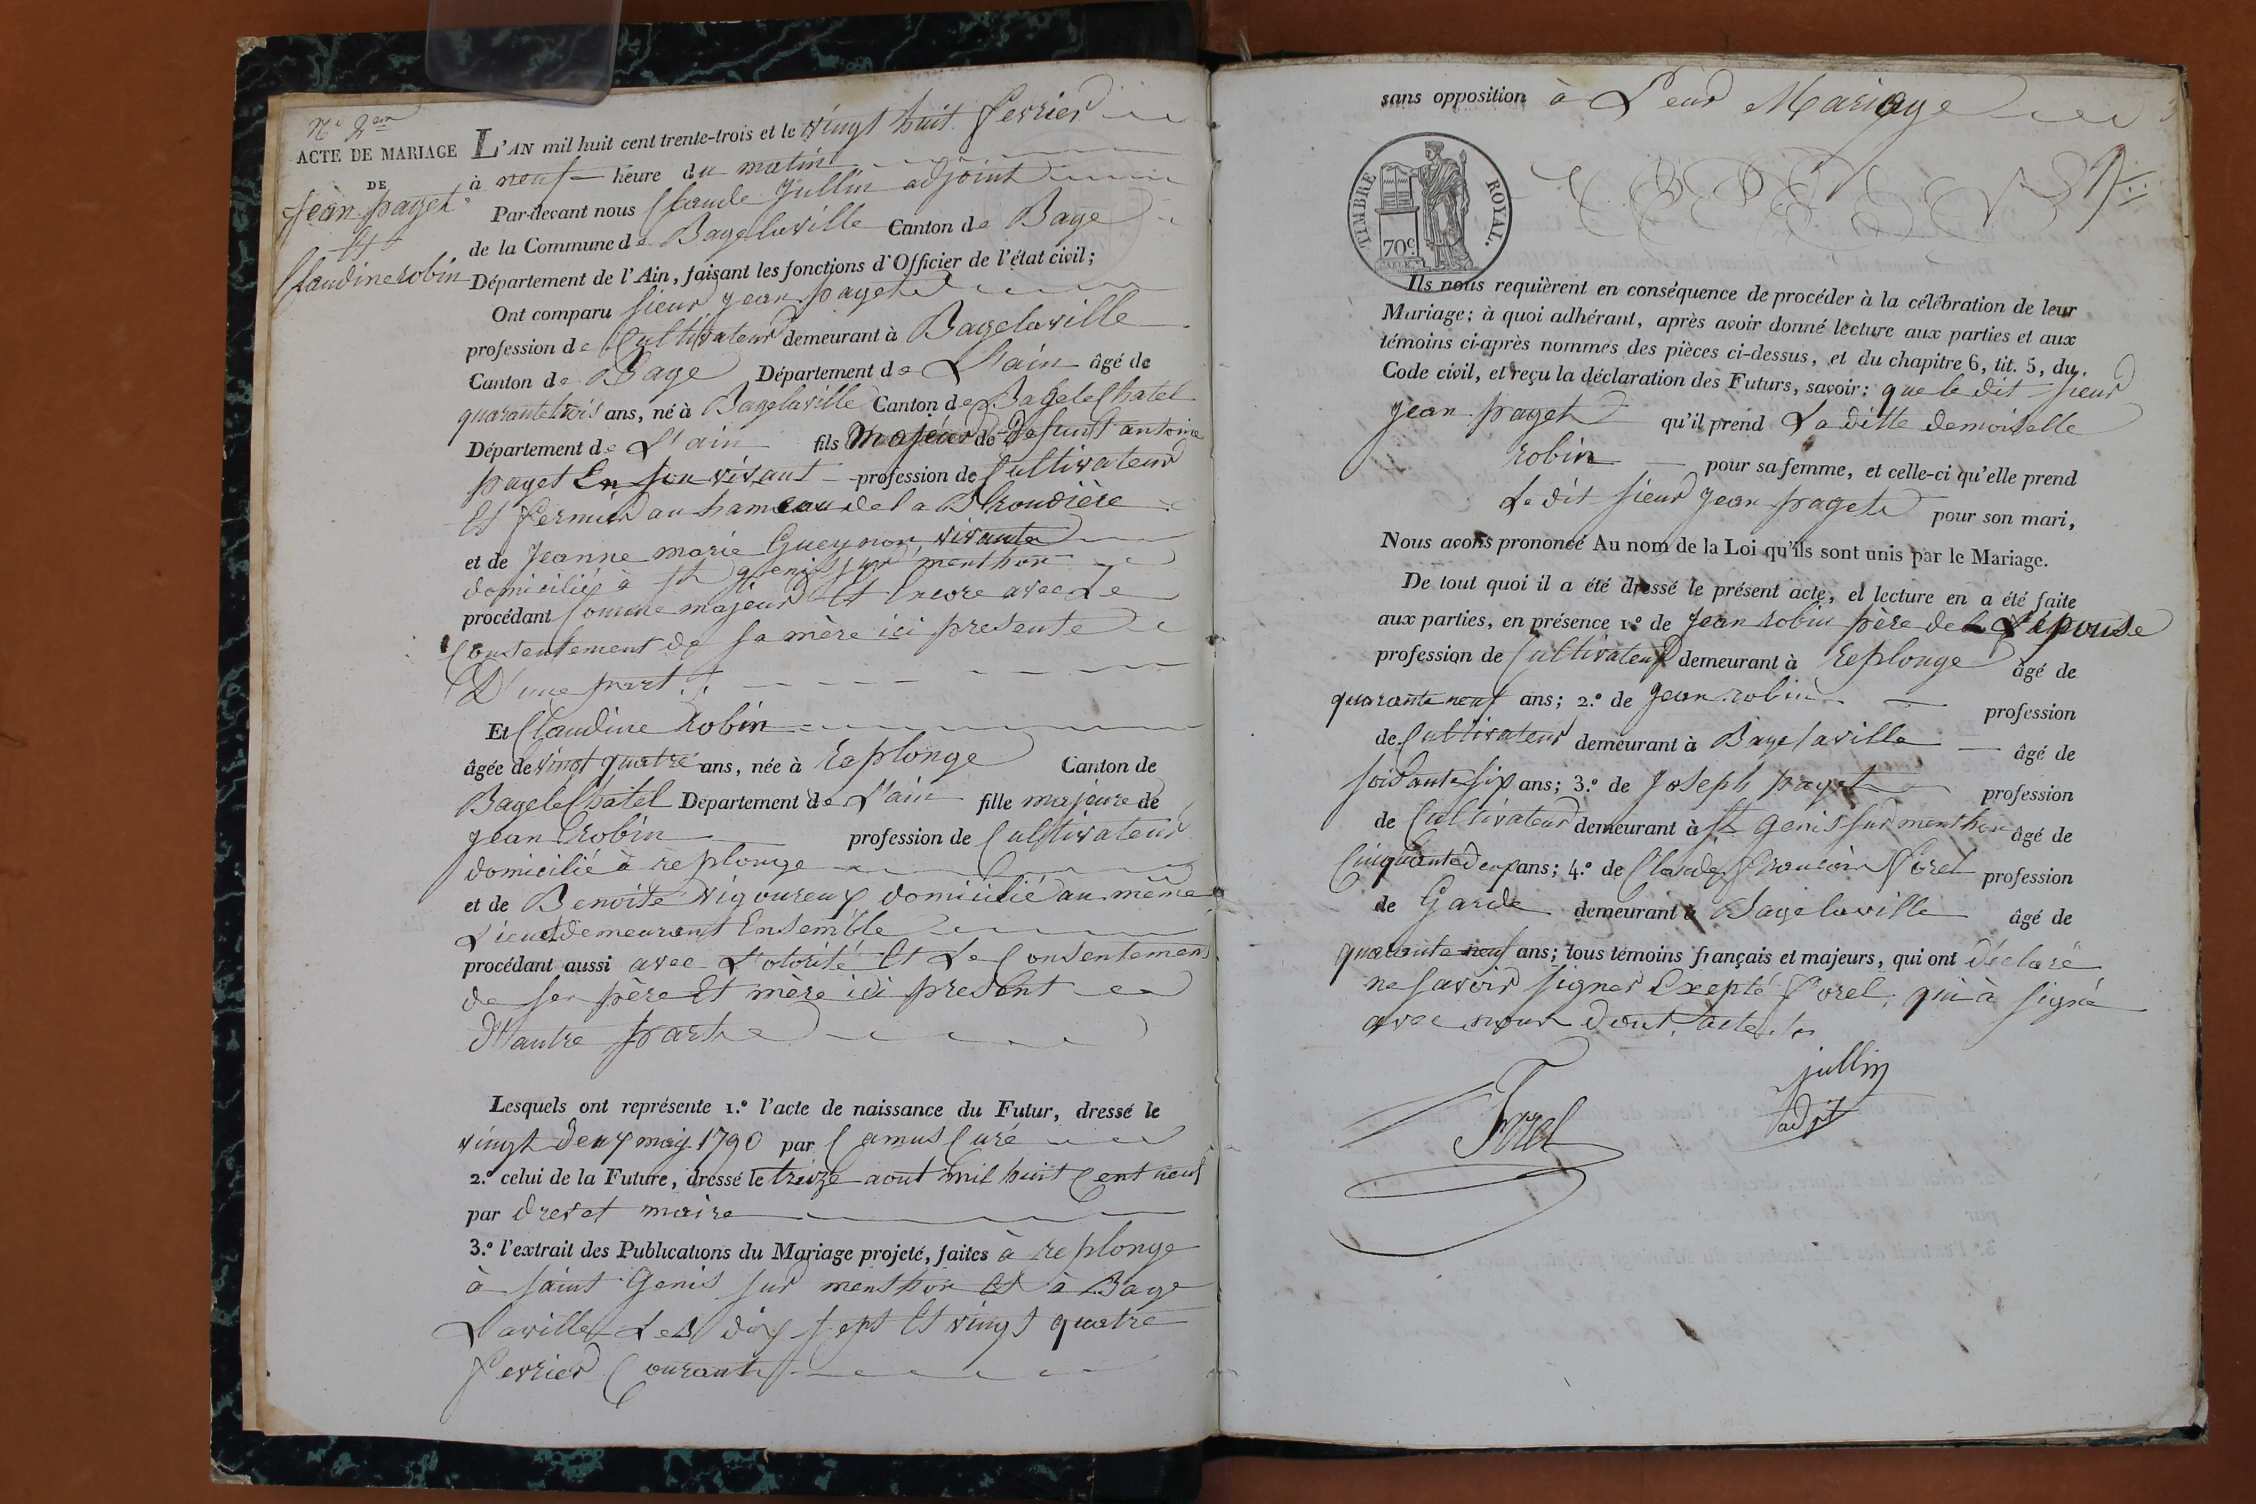 N.º 2em
ACTE DE MARIAGE
DE
jean paget
Et
Claudine robin
L'AN mil huit cent trente-trois et le vingt huit fevrier
à neuf heure du matin
Par-devant nous Claude Jullin adjoint
de la Commune de Bagelaville Canton de Bage
Département de l'Ain, faisant les fonctions d'Officier de l'état civil;
Ont comparu sieur jean paget
profession de Cultivateur demeurant à Bagelaville
Canton de Bage Département de L'ain âgé de
quarantetrois ans, né à Bagelaville Canton de Bagelechatel
Département de L'ain fils Majeur de Defunt antoine
paget En son vivant profession de Cultivateur
Et fermier au hameau de la
et de Jeanne marie Gueynon vivante
domicilié à st genis sur menthon
procédant Comme majeur Et Encore avec Le
Consentement de sa mère ici presente
D'une part
Et Claudine Robin
âgée de vingt quatre ans, née à Replonge Canton de
BageleChâtel Département de L'ain fille majeure de
jean Robin profession de Cultivateur
domicilié à replonge
et de Benoite Vigoureux domicilié au même
Lieu et demeurant Ensemble
procédant aussi avec L'otorité Et Le Consentement
de ses père Et mère ici present
D'autre part
Lesquels ont représente 1.º l'acte de naissance du Futur, dressé le
vingt deux may 1790 par Camus Curé
2.º celui de la Future, dressé le treize aout mil huit Cent neuf
par drevet maire
3.º l'extrait des Publications du Mariage projeté, faites à replonge
à saint Genis sur menthon Et à Bage
Laville Les dix sept Et vingt quatre
fevrier Courant
sans opposition à Leur Mariage
TIMBRE ROYAL.
70c
Ils nous requièrent en conséquence de procéder à la célébration de leur
Mariage; à quoi adhérant, après avoir donné lecture aux parties et aux
témoins ci-après nommés des pièces ci-dessus, et du chapitre 6, tit. 5, du
Code civil, et reçu la déclaration des Futurs, savoir: que le dit sieur
jean paget qu'il prend La ditte demoiselle
robin pour sa femme, et celle-ci qu'elle prend
Le dit sieur jean paget pour son mari,
Nous avons prononcé Au nom de la Loi qu'ils sont unis par le Mariage.
De tout quoi il a été dressé le présent acte, et lecture en a été faite
aux parties, en présence 1.º de jean robin père de L'épouse
profession de Cultivateur demeurant à replonge âgé de
quarante neuf ans; 2.º de jean robin profession
de Cultivateur demeurant à Bagelaville âgé de
soixante six ans; 3.º de Joseph paget profession
de Cultivateur demeurant à st genis sur menthon âgé de
Cinquante deux ans; 4.º de Claude françois forel profession
de Garde demeurant à Bagelaville âgé de
quarante neuf ans; tous témoins français et majeurs, qui ont déclaré
ne savoir signer Excepté forel, qui à signé
avec nous dont acte
Forel
jullin
adjt